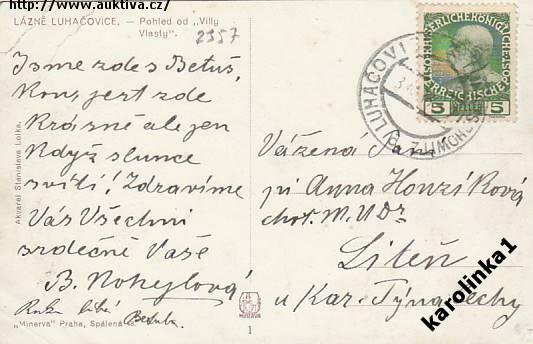 http://www.auktiva.cz/
LÁZNĚ LUHAČOVICE. — Pohled od „Villy
Vlasty".
2357
Jsme zde s Betuš,
jest zde
Krásné ale jen
Když slunce
svítí! Zdravíme
Vás Všechny
srdečně Vaše
B. Nohejlová
Ruku líbá
Betuška
Akvarel Stanislava Lolka.
„Minerva" Praha, Spálená
MINERVA
1
LUHAČOVI
5 HELLER 5
Vážená Paní
pí Anna Honzíková
chot. M.U.Dr
Liteň
u Kar. Týna Čechy
karolinka1